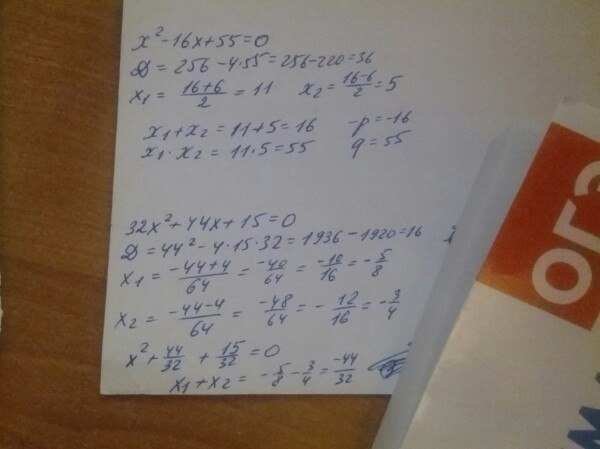 x² - 16x + 55 = 0
D = 256 - 4·55 = 256 - 220 = 36
x₁ = (16+6)/2 = 11   x₂ = (16-6)/2 = 5
x₁ + x₂ = 11 + 5 = 16   -p = -16
x₁ · x₂ = 11 · 5 = 55   q = 55
32x² + 44x + 15 = 0
D = 44² - 4·15·32 = 1936 - 1920 = 16
x₁ = (-44+4)/64 = -40/64 = -10/16 = -5/8
x₂ = (-44-4)/64 = -48/64 = -12/16 = -3/4
x² + 44/32 + 15/32 = 0
x₁ + x₂ = -5/8 - 3/4 = -44/32
ОГЭ